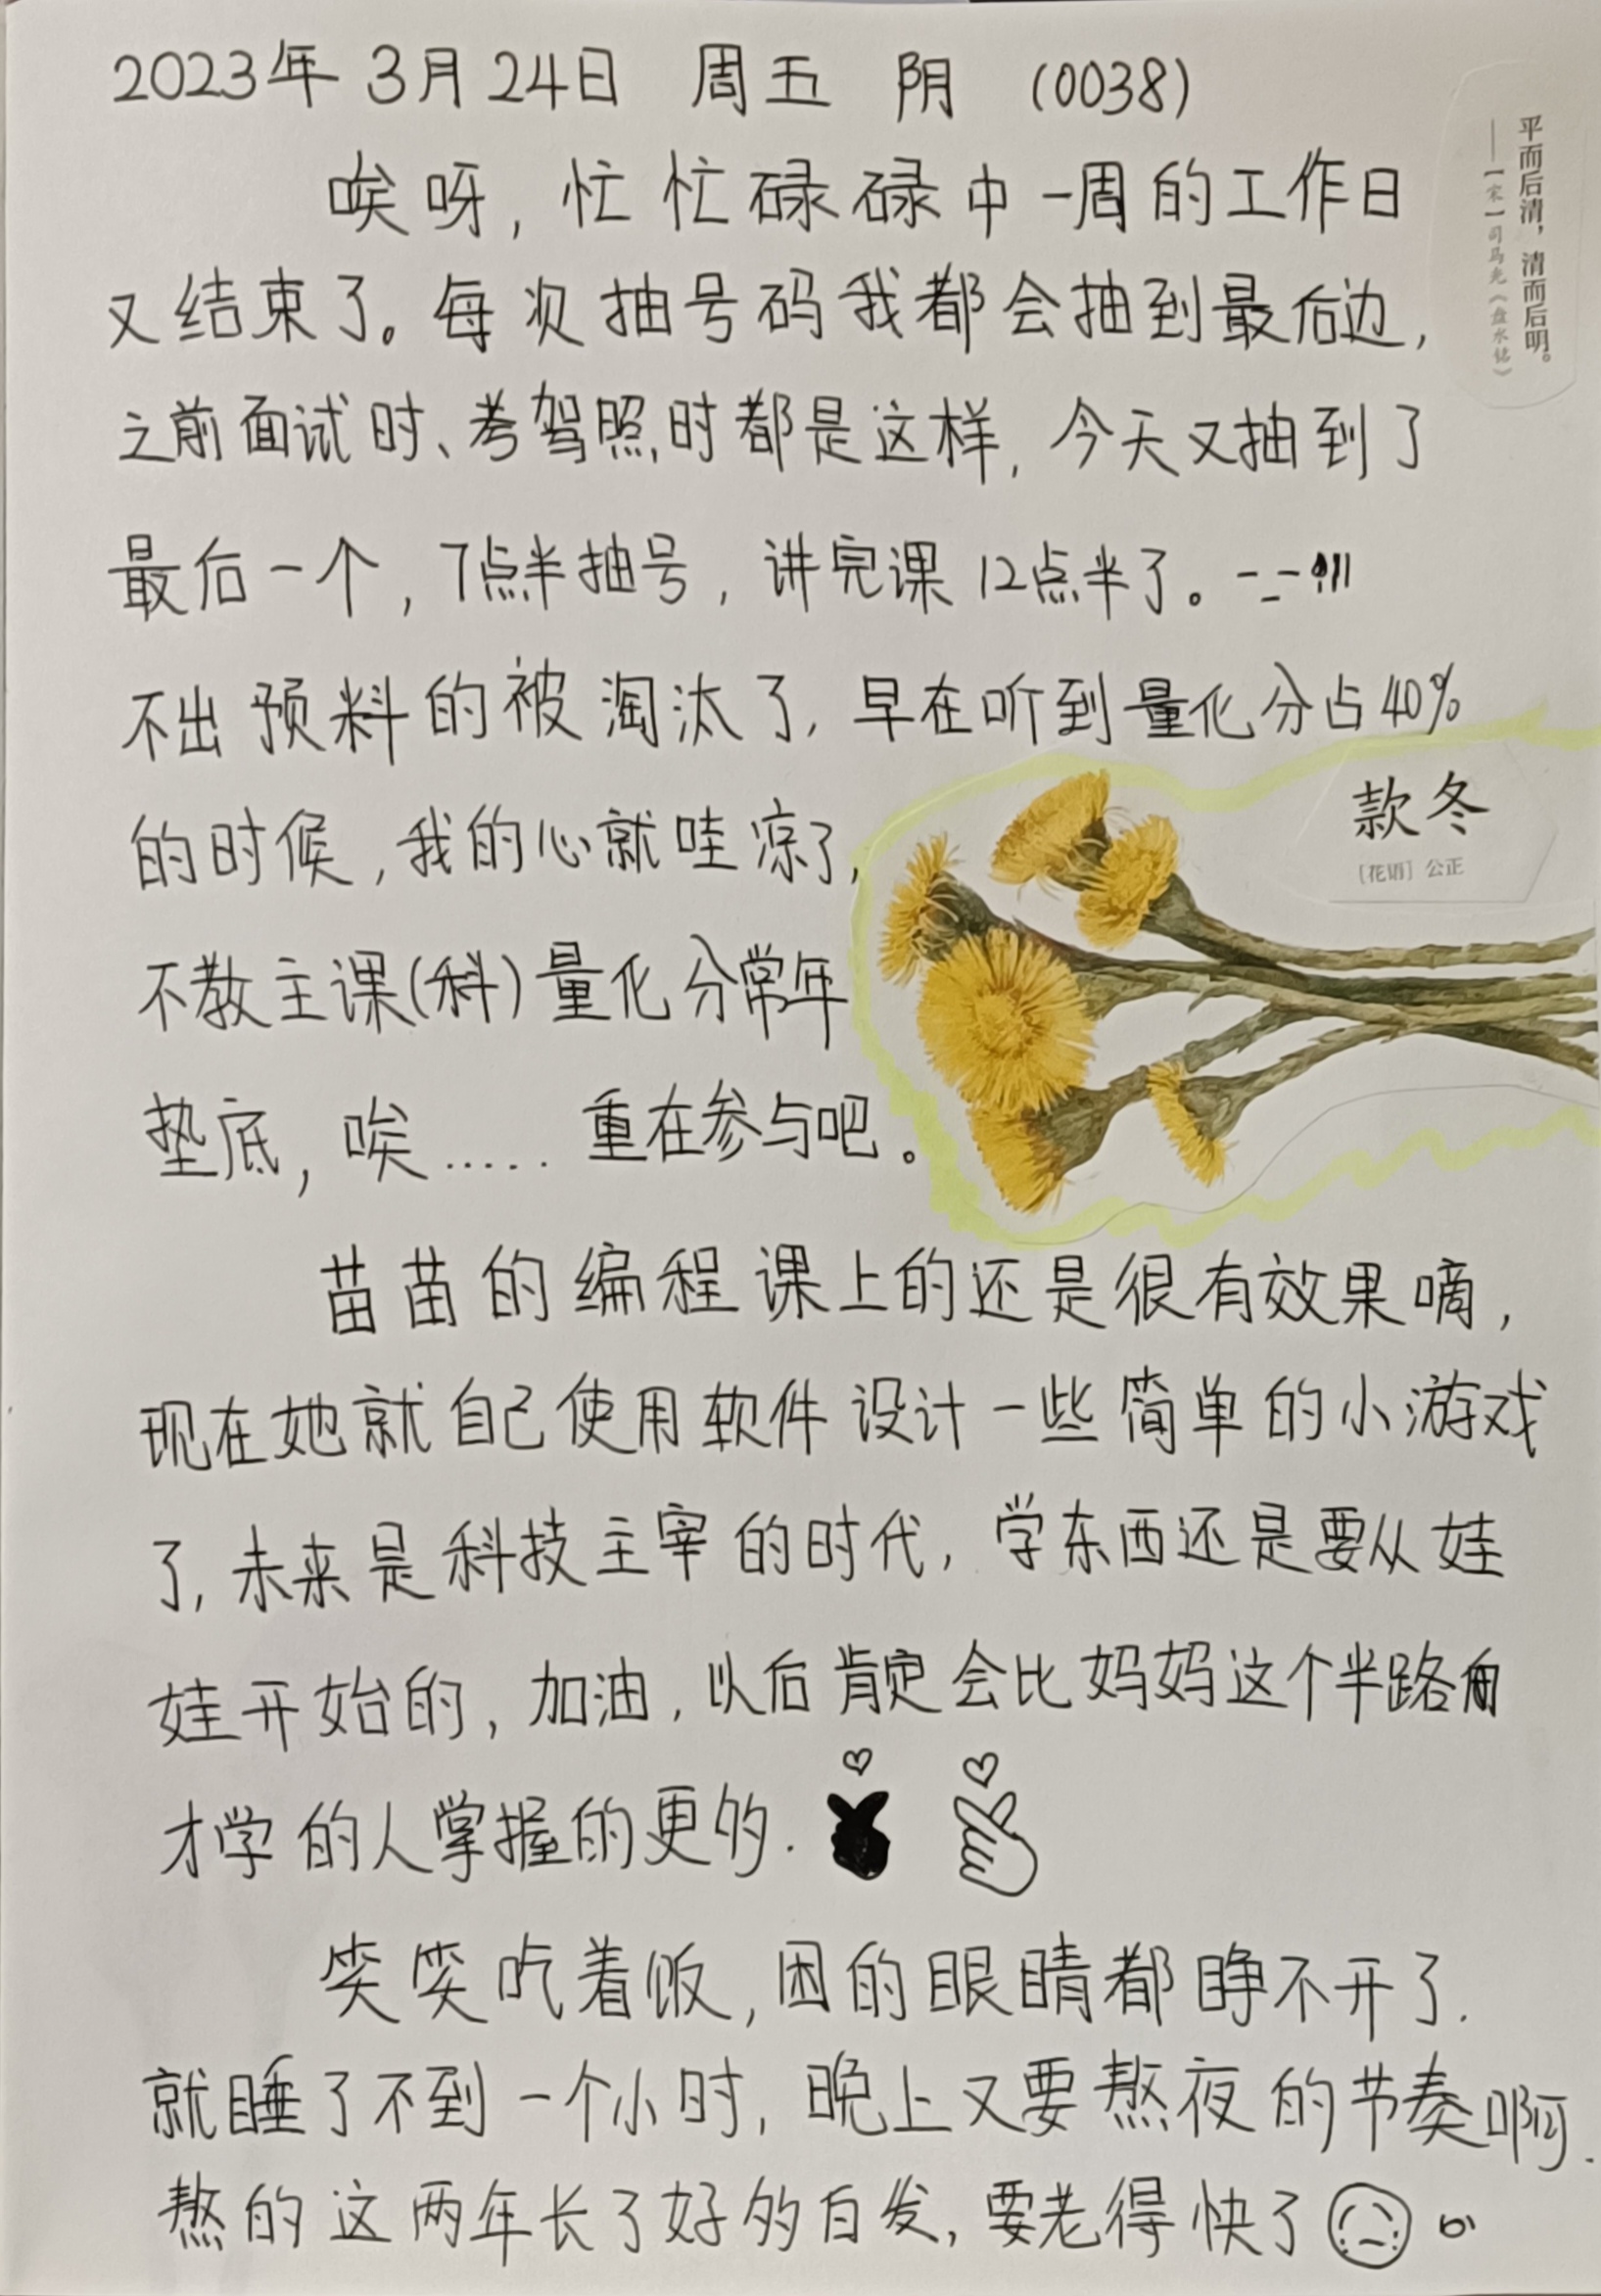 2023年 3月 24日 周五 阴 (0038)
唉呀，忙忙碌碌中一周的工作日
又结束了。每次抽号码我都会抽到最后边，
之前面试时、考驾照时都是这样，今天又抽到了
最后一个，7点半抽号，讲完课 12点半了。
不出预料的被淘汰了，早在听到量化分占40%
的时候，我的心就哇凉了，
不教主课(科)量化分常年
垫底，唉…… 重在参与吧。
苗苗的编程课上的还是很有效果嘀，
现在她就自己使用软件设计一些简单的小游戏
了，未来是科技主宰的时代，学东西还是要从娃
娃开始的，加油，以后肯定会比妈妈这个半路
才学的人掌握的更多.
笑笑吃着饭，困的眼睛都睁不开了.
就睡了不到一个小时，晚上又要熬夜的节奏啊.
熬的这两年长了好多白发，要老得快了
平而后清，清而后明。
——【宋】司马光《盘水铭》
款冬
［花语］公正